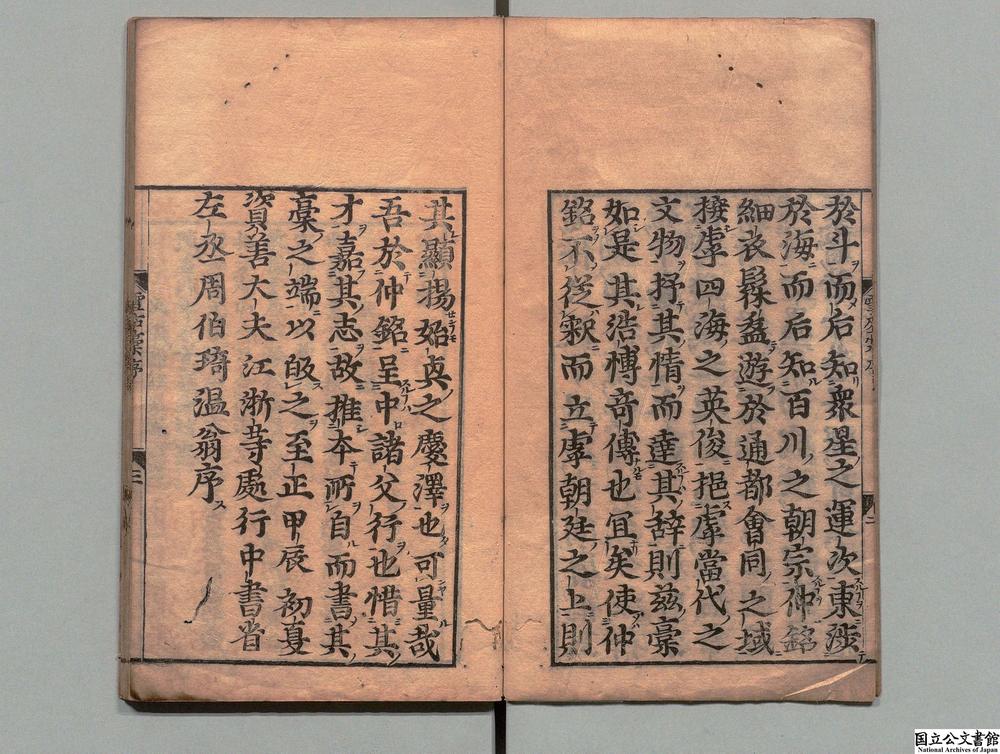 於斗而后知衆星之運次東渉
於海而后知百川之朝宗仲銘
細衣髽盍遊於通都會同之域
接虖四海之英俊挹虖當代之
文物抒其情而達其辞則兹稾
如是其浩博竒傳也冝矣使仲
銘不從釈而立虖朝廷之上則
其顯揚始真之慶澤也可量哉
吾於仲銘呈中諸父行也惜其
才嘉其志故推本所自而書其
稾之端以皈之至正甲辰初夏
資善大夫江浙等處行中書省
左丞周伯琦温翁序
三
国立公文書館
National Archives of Japan